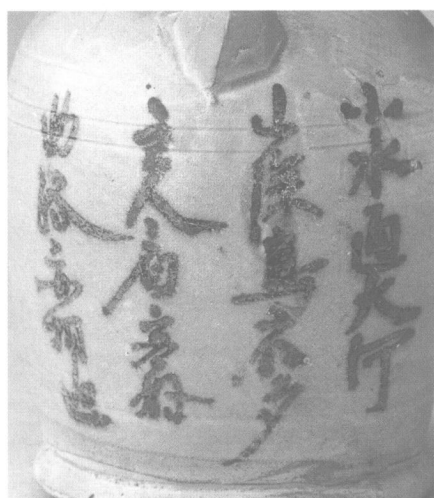 小水通大河
山深鳥宿多
主人看客好
曲路亦相過